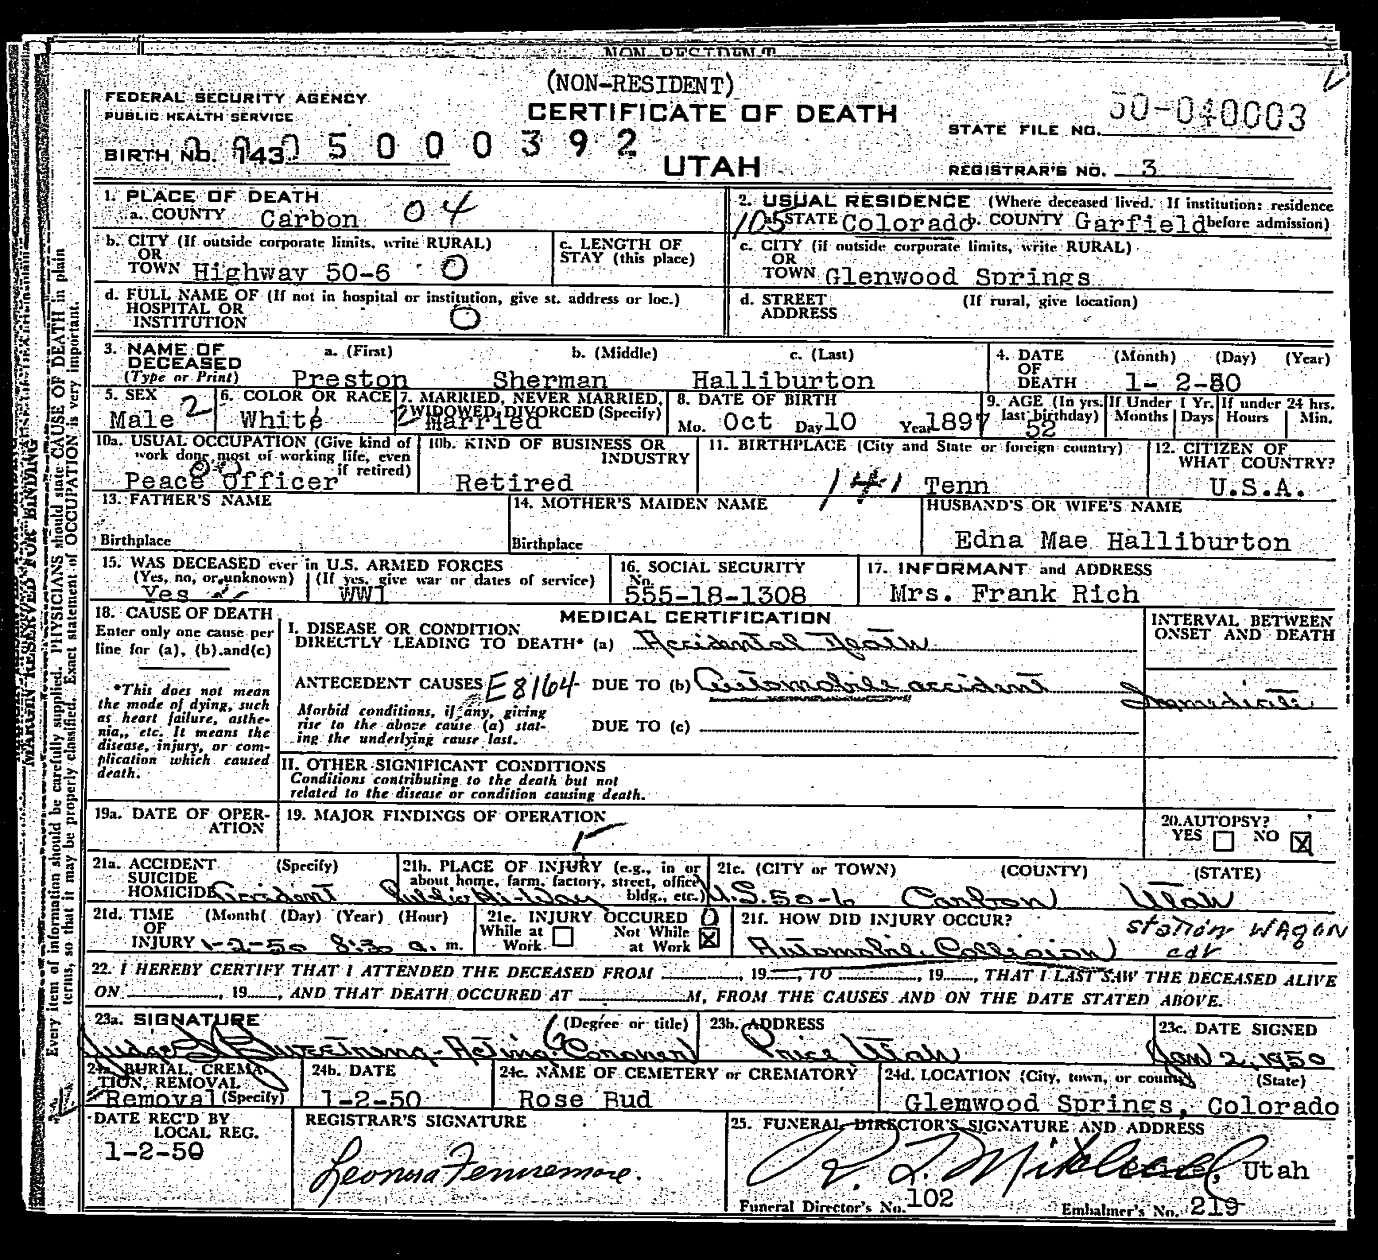 (NON-RESIDENT)
FEDERAL SECURITY AGENCY
PUBLIC HEALTH SERVICE
CERTIFICATE OF DEATH
STATE FILE NO. 50-040003
BIRTH NO. 143 5 0 0 0 3 9 2
UTAH
REGISTRAR'S NO. 3
1. PLACE OF DEATH
a. COUNTY Carbon 04
2. USUAL RESIDENCE (Where deceased lived. If institution: residence before admission)
105 a. STATE Colorado b. COUNTY Garfield
b. CITY (If outside corporate limits, write RURAL)
OR
TOWN Highway 50-6 0
c. LENGTH OF
STAY (this place)
c. CITY (if outside corporate limits, write RURAL)
OR
TOWN Glenwood Springs
d. FULL NAME OF (If not in hospital or institution, give st. address or loc.)
HOSPITAL OR
INSTITUTION 0
d. STREET (If rural, give location)
ADDRESS
3. NAME OF DECEASED
(Type or Print)
a. (First) b. (Middle) c. (Last)
Preston Sherman Halliburton
4. DATE OF DEATH (Month) (Day) (Year)
1- 2-50
5. SEX
Male 2
6. COLOR OR RACE
White
7. MARRIED, NEVER MARRIED,
WIDOWED, DIVORCED (Specify)
2 Married
8. DATE OF BIRTH
Mo. Oct Day 10 Year 1897
9. AGE (In yrs. last birthday) 52
If Under 1 Yr. Months Days
If under 24 hrs. Hours Min.
10a. USUAL OCCUPATION (Give kind of
work done most of working life, even
if retired)
Peace Officer
10b. KIND OF BUSINESS OR
INDUSTRY
Retired
11. BIRTHPLACE (City and State or foreign country)
141 Tenn
12. CITIZEN OF
WHAT COUNTRY?
U.S.A.
13. FATHER'S NAME
Birthplace
14. MOTHER'S MAIDEN NAME
Birthplace
HUSBAND'S OR WIFE'S NAME
Edna Mae Halliburton
15. WAS DECEASED ever in U.S. ARMED FORCES
(Yes, no, or unknown) (If yes, give war or dates of service)
Yes WW1
16. SOCIAL SECURITY
No.
555-18-1308
17. INFORMANT and ADDRESS
Mrs. Frank Rich
18. CAUSE OF DEATH
Enter only one cause per
line for (a), (b) and (c)
*This does not mean
the mode of dying, such
as heart failure, asthe-
nia,, etc. It means the
disease, injury, or com-
plication which caused
death.
MEDICAL CERTIFICATION
I. DISEASE OR CONDITION
DIRECTLY LEADING TO DEATH* (a) Accidental Death
ANTECEDENT CAUSES E8164 DUE TO (b) Automobile accident
Morbid conditions, if any, giving
rise to the above cause (a) stat-
ing the underlying cause last.
DUE TO (c)
INTERVAL BETWEEN
ONSET AND DEATH
Immediate
II. OTHER SIGNIFICANT CONDITIONS
Conditions contributing to the death but not
related to the disease or condition causing death.
19a. DATE OF OPER-
ATION
19. MAJOR FINDINGS OF OPERATION
20. AUTOPSY?
YES NO X
21a. ACCIDENT (Specify)
SUICIDE
HOMICIDE Accident
21b. PLACE OF INJURY (e.g., in or
about home, farm, factory, street, office
bldg., etc.)
Public Hi-Way
21c. (CITY or TOWN) (COUNTY) (STATE)
U.S. 50-6 Carbon Utah
21d. TIME (Month( (Day) (Year) (Hour)
OF
INJURY 1-2-50 8:30 a. m.
21e. INJURY OCCURED
While at Work Not While at Work X
21f. HOW DID INJURY OCCUR?
Automobile Collision
station WAgon
car
22. I HEREBY CERTIFY THAT I ATTENDED THE DECEASED FROM , 19 , TO , 19 , THAT I LAST SAW THE DECEASED ALIVE
ON , 19 , AND THAT DEATH OCCURED AT M, FROM THE CAUSES AND ON THE DATE STATED ABOVE.
23a. SIGNATURE (Degree or title)
Acting Coroner
23b. ADDRESS
Price Utah
23c. DATE SIGNED
Jan 2, 1950
24a. BURIAL, CREMA-
TION, REMOVAL
Removal (Specify)
24b. DATE
1-2-50
24c. NAME OF CEMETERY or CREMATORY
Rose Bud
24d. LOCATION (City, town, or county) (State)
Glemwood Springs, Colorado
DATE REC'D BY
LOCAL REG.
1-2-50
REGISTRAR'S SIGNATURE
Leonora Fennemore.
25. FUNERAL DIRECTOR'S SIGNATURE AND ADDRESS
Utah
Funeral Director's No. 102
Embalmer's No. 219
MARGIN RESERVED FOR BINDING
Every item of information should be carefully supplied. PHYSICIANS should state CAUSE OF DEATH in plain
terms, so that it may be properly classified. Exact statement of OCCUPATION is very important.